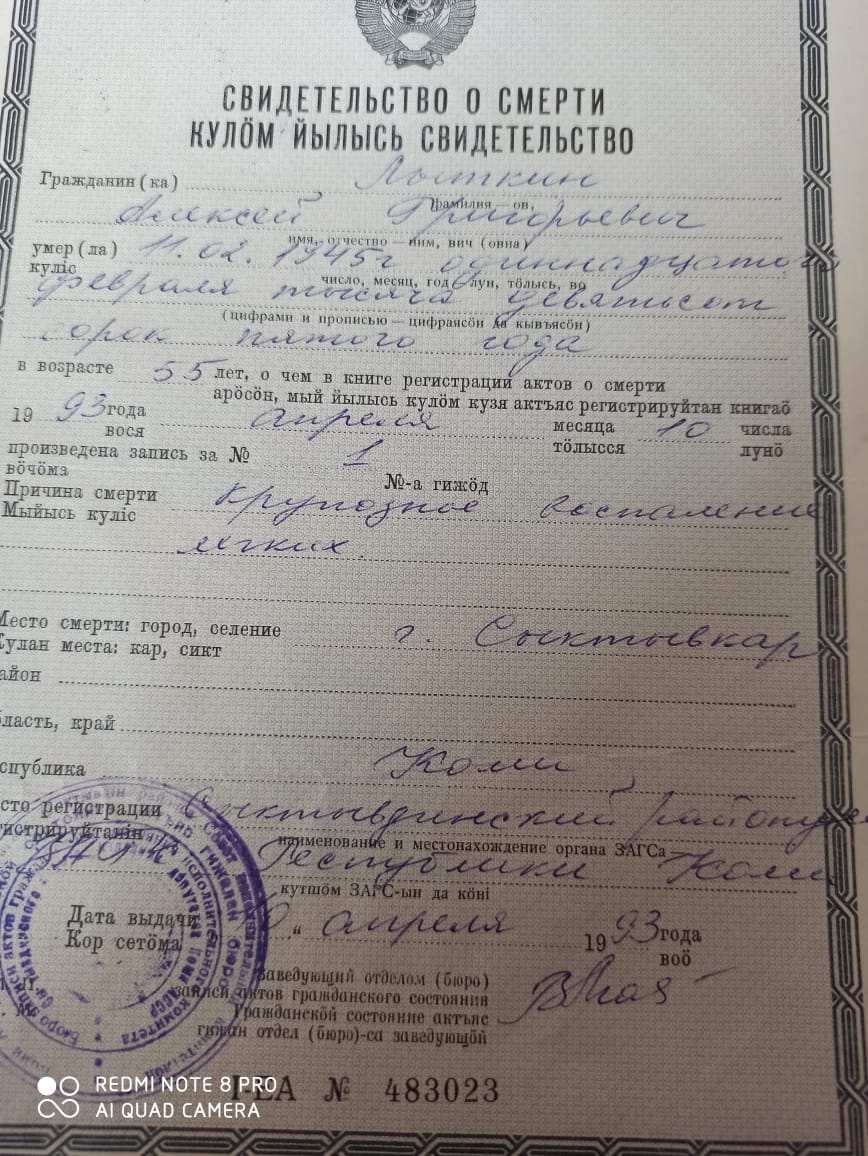 СВИДЕТЕЛЬСТВО О СМЕРТИ
КУЛӦМ ЙЫЛЫСЬ СВИДЕТЕЛЬСТВО
Гражданин (ка) Лыткин
фамилия — ов,
Алексей Григорьевич
имя, отчество — ним, вич (овна)
умер (ла) 11.02.1945г одиннадцатого
кулiс
число, месяц, год — лун, тӧлысь, во
февраля тысяча девятьсот
(цифрами и прописью — цифраясӧн да кывъясӧн)
сорок пятого года
в возрасте 55 лет, о чем в книге регистрации актов о смерти
арӧсӧн, мый йылысь кулӧм кузя актъяс регистрируйтан книгаӧ
19 93 года апреля месяца 10 числа
вося тӧлысся лунӧ
произведена запись за № 1
вӧчӧма №-а гижӧд
Причина смерти Крупозное воспаление
Мыйысь кулiс
легких.
Место смерти: город, селение г. Сыктывкар
Кулан места: кар, сикт
айон
бласть, край
спубликa Коми
сто регистрации Сыктывдинский
гистрируйтанiн
наименование и местонахождение органа ЗАГСа
ЗАГС Республики Коми
кутшӧм ЗАГС-ын да кӧнi
Дата выдачи 10 „ апреля 19 93 года
Кор сетӧма воӧ
Заведующий отделом (бюро)
записи актов гражданского состояния
Гражданскӧй состояние актъяс
гижан отдел (бюро)-са заведующӧй
I-ЕА № 483023
REDMI NOTE 8 PRO
AI QUAD CAMERA